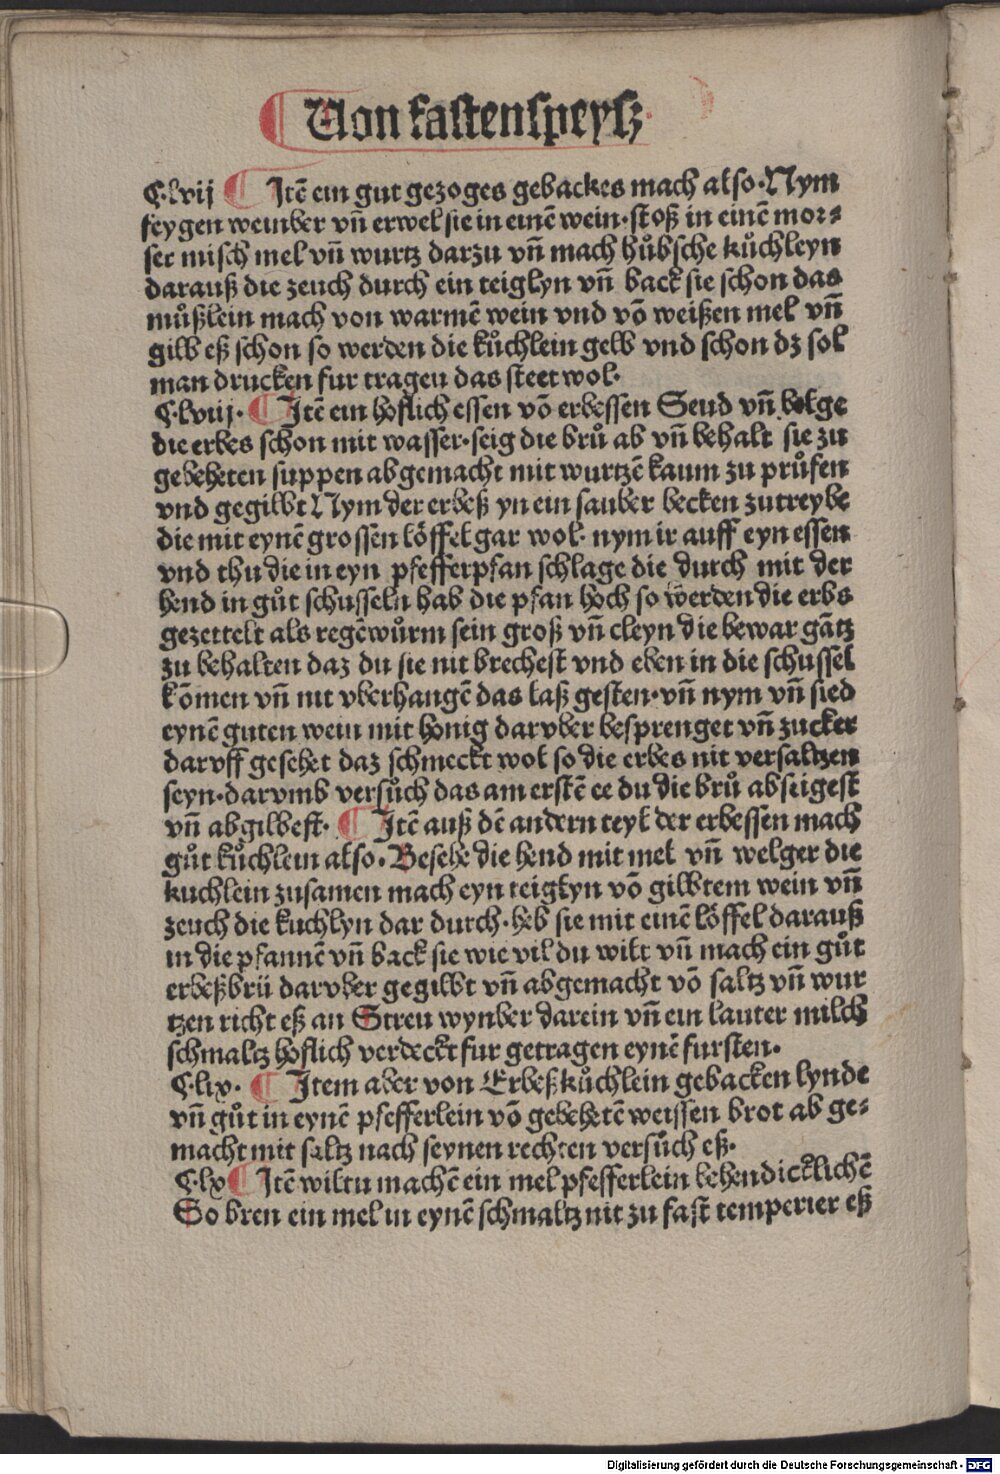 Von fastenspeysz
C·lvij Jtē ein gut gezoges gebackes mach also· Nym
feygen weinber vñ erwel sie in einē wein· stoß in einē mor⸗
ser misch mel vñ wurtz darzu vñ mach hůbsche kůchleyn
darauß die zeuch durch ein teiglyn vñ back sie schon das
můßlein mach von warmē wein vnd vō weißen mel vñ
gilb eß schon so werden die kůchlein gelb vnd schon dz sol
man drucken fur tragen das steet wol·
C·lviij· Jtē ein hoflich essen vō erbessen Seud vñ belge
die erbes schon mit wasser· seig die brů ab vñ behalt sie zu
gebeheten suppen abgemacht mit wurtzē kaum zu průfen
vnd gegilbt Nym der erbeß yn ein sauber becken zutreybe
die mit eynē grossen löffel gar wol· nym ir auff eyn essen
vnd thu die in eyn pfefferpfan schlage die durch mit der
hend in gůt schusseln hab die pfan hoch so werden die erbs
gezettelt als regēwůrm sein groß vñ cleyn die bewar gātz
zu behalten daz du sie nit brechest vnd eben in die schussel
kōmen vñ nit vberhangē das laß gesten· vñ nym vñ sied
eynē guten wein mit honig darvber besprenget vñ zucker
darvff gesehet daz schmeckt wol so die erbes nit versaltzen
seyn· darvmb versůch das am erstē ee du die brů abseigest
vñ abgilbest· Jtē auß dē andern teyl der erbessen mach
gůt kůchlein also· Besehe die hend mit mel vñ welger die
kuchlein zusamen mach eyn teiglyn vō gilbtem wein vñ
zeuch die kuchlyn dar durch· heb sie mit einē löffel darauß
in die pfannē vñ back sie wie vil du wilt vñ mach ein gůt
erbeßbrü darvber gegilbt vñ abgemacht vō saltz vñ wur
tzen richt eß an Streu wynber darein vñ ein lauter milch
schmaltz hoflich verdeckt fur getragen eynē fursten·
C·lix· Jtem aber von Erbeß kůchlein gebacken lynde
vñ gůt in eynē pfefferlein vō gebehetē weissen brot ab ge⸗
macht mit saltz nach seynen rechten versůch eß·
C·lx Jtē wiltu machē ein mel pfefferlein behendicklichē
So bren ein mel in eynē schmaltz nit zu fast temperier eß
Digitalisierung gefördert durch die Deutsche Forschungsgemeinschaft - DFG